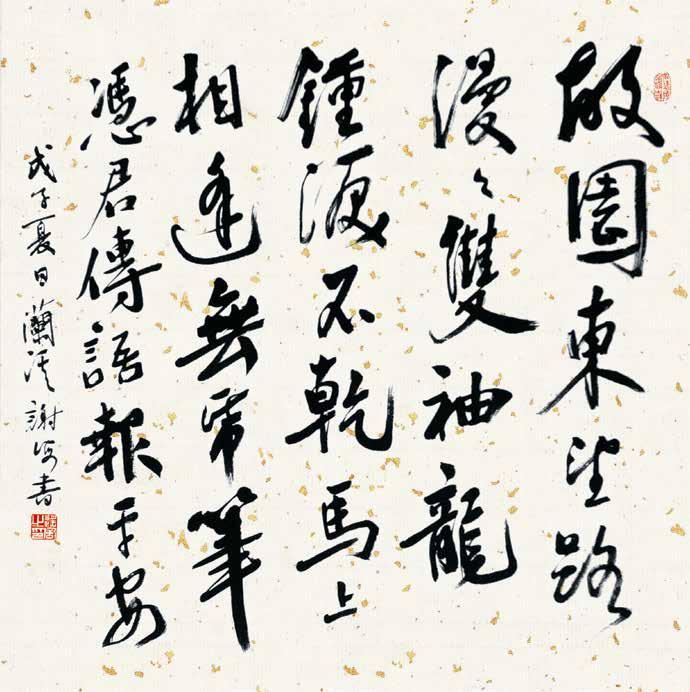 故園東望路
漫々雙袖龍
鍾淚不乾馬上
相逢無帋筆
憑君傳語報平安
戊子夏日蘭溪謝書